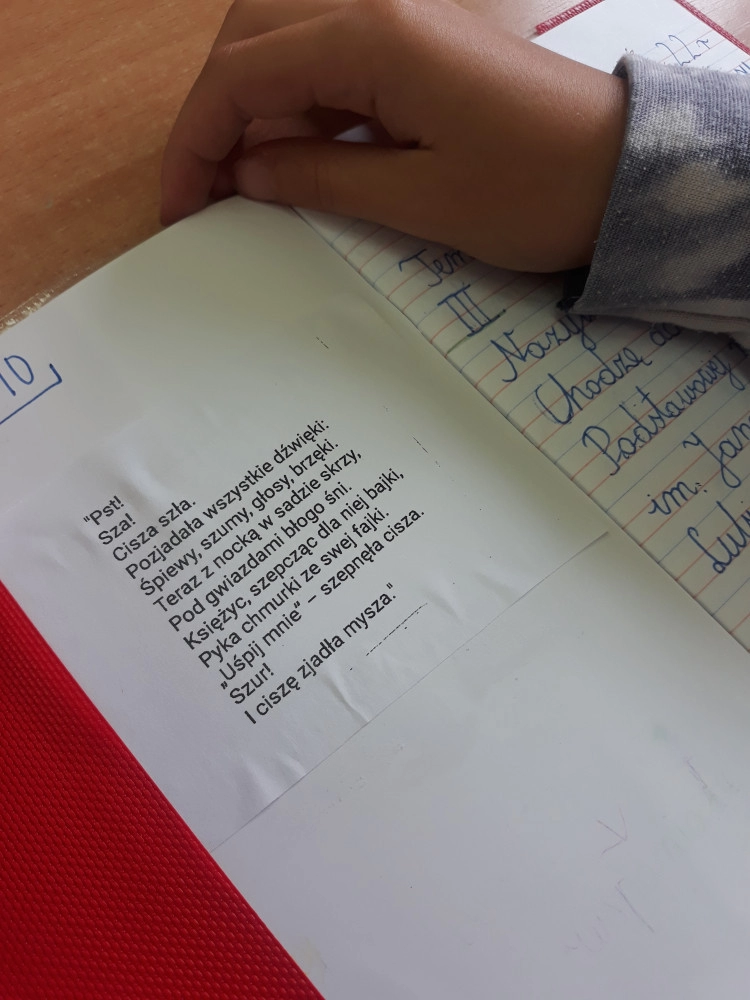 10
"Pst!
Sza!
Cisza szła.
Pozjadała wszystkie dźwięki:
Śpiewy, szumy, głosy, brzęki.
Teraz z nocką w sadzie skrzy,
Pod gwiazdami błogo śni.
Księżyc, szepcząc dla niej bajki,
Pyka chmurki ze swej fajki.
„Uśpij mnie" – szepnęła cisza.
Szur!
I ciszę zjadła mysza."
22r
III
Chodzę do
Podstawowej
im.